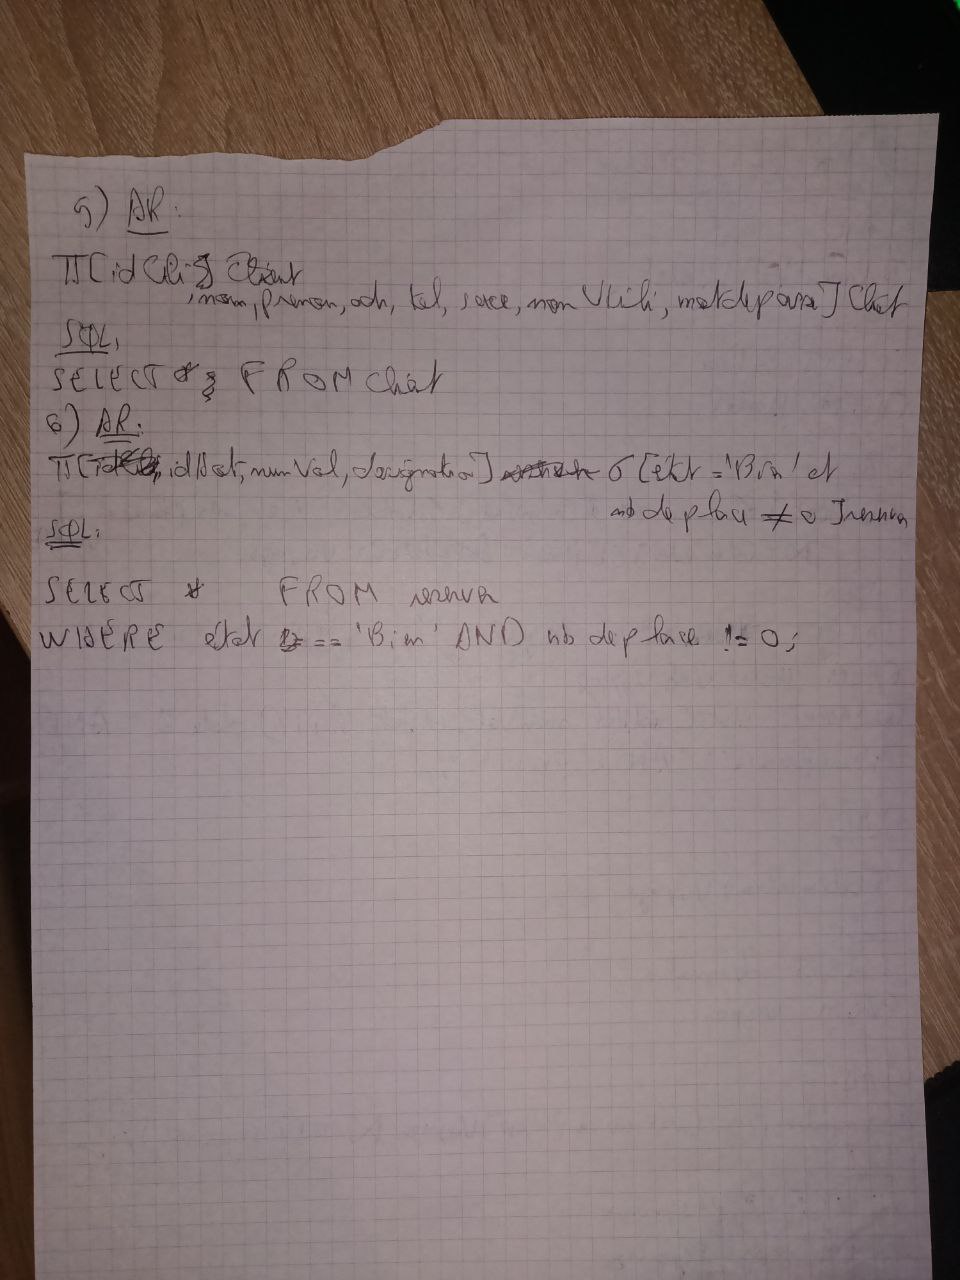 5) AR:
π[idCli] Client
, nom, prenom, adr, tel, sexe, nomUtili, motdepasse] Client
SQL:
SELECT * FROM Client
6) AR:
π[ numVol, designation] σ [état = 'Bim' et
nb de place ≠ 0 ]
SQL:
SELECT * FROM
WHERE état == 'Bim' AND nb de place != 0;